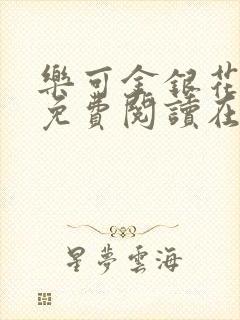 樂可金銀花
免費閱讀在
星夢雲海